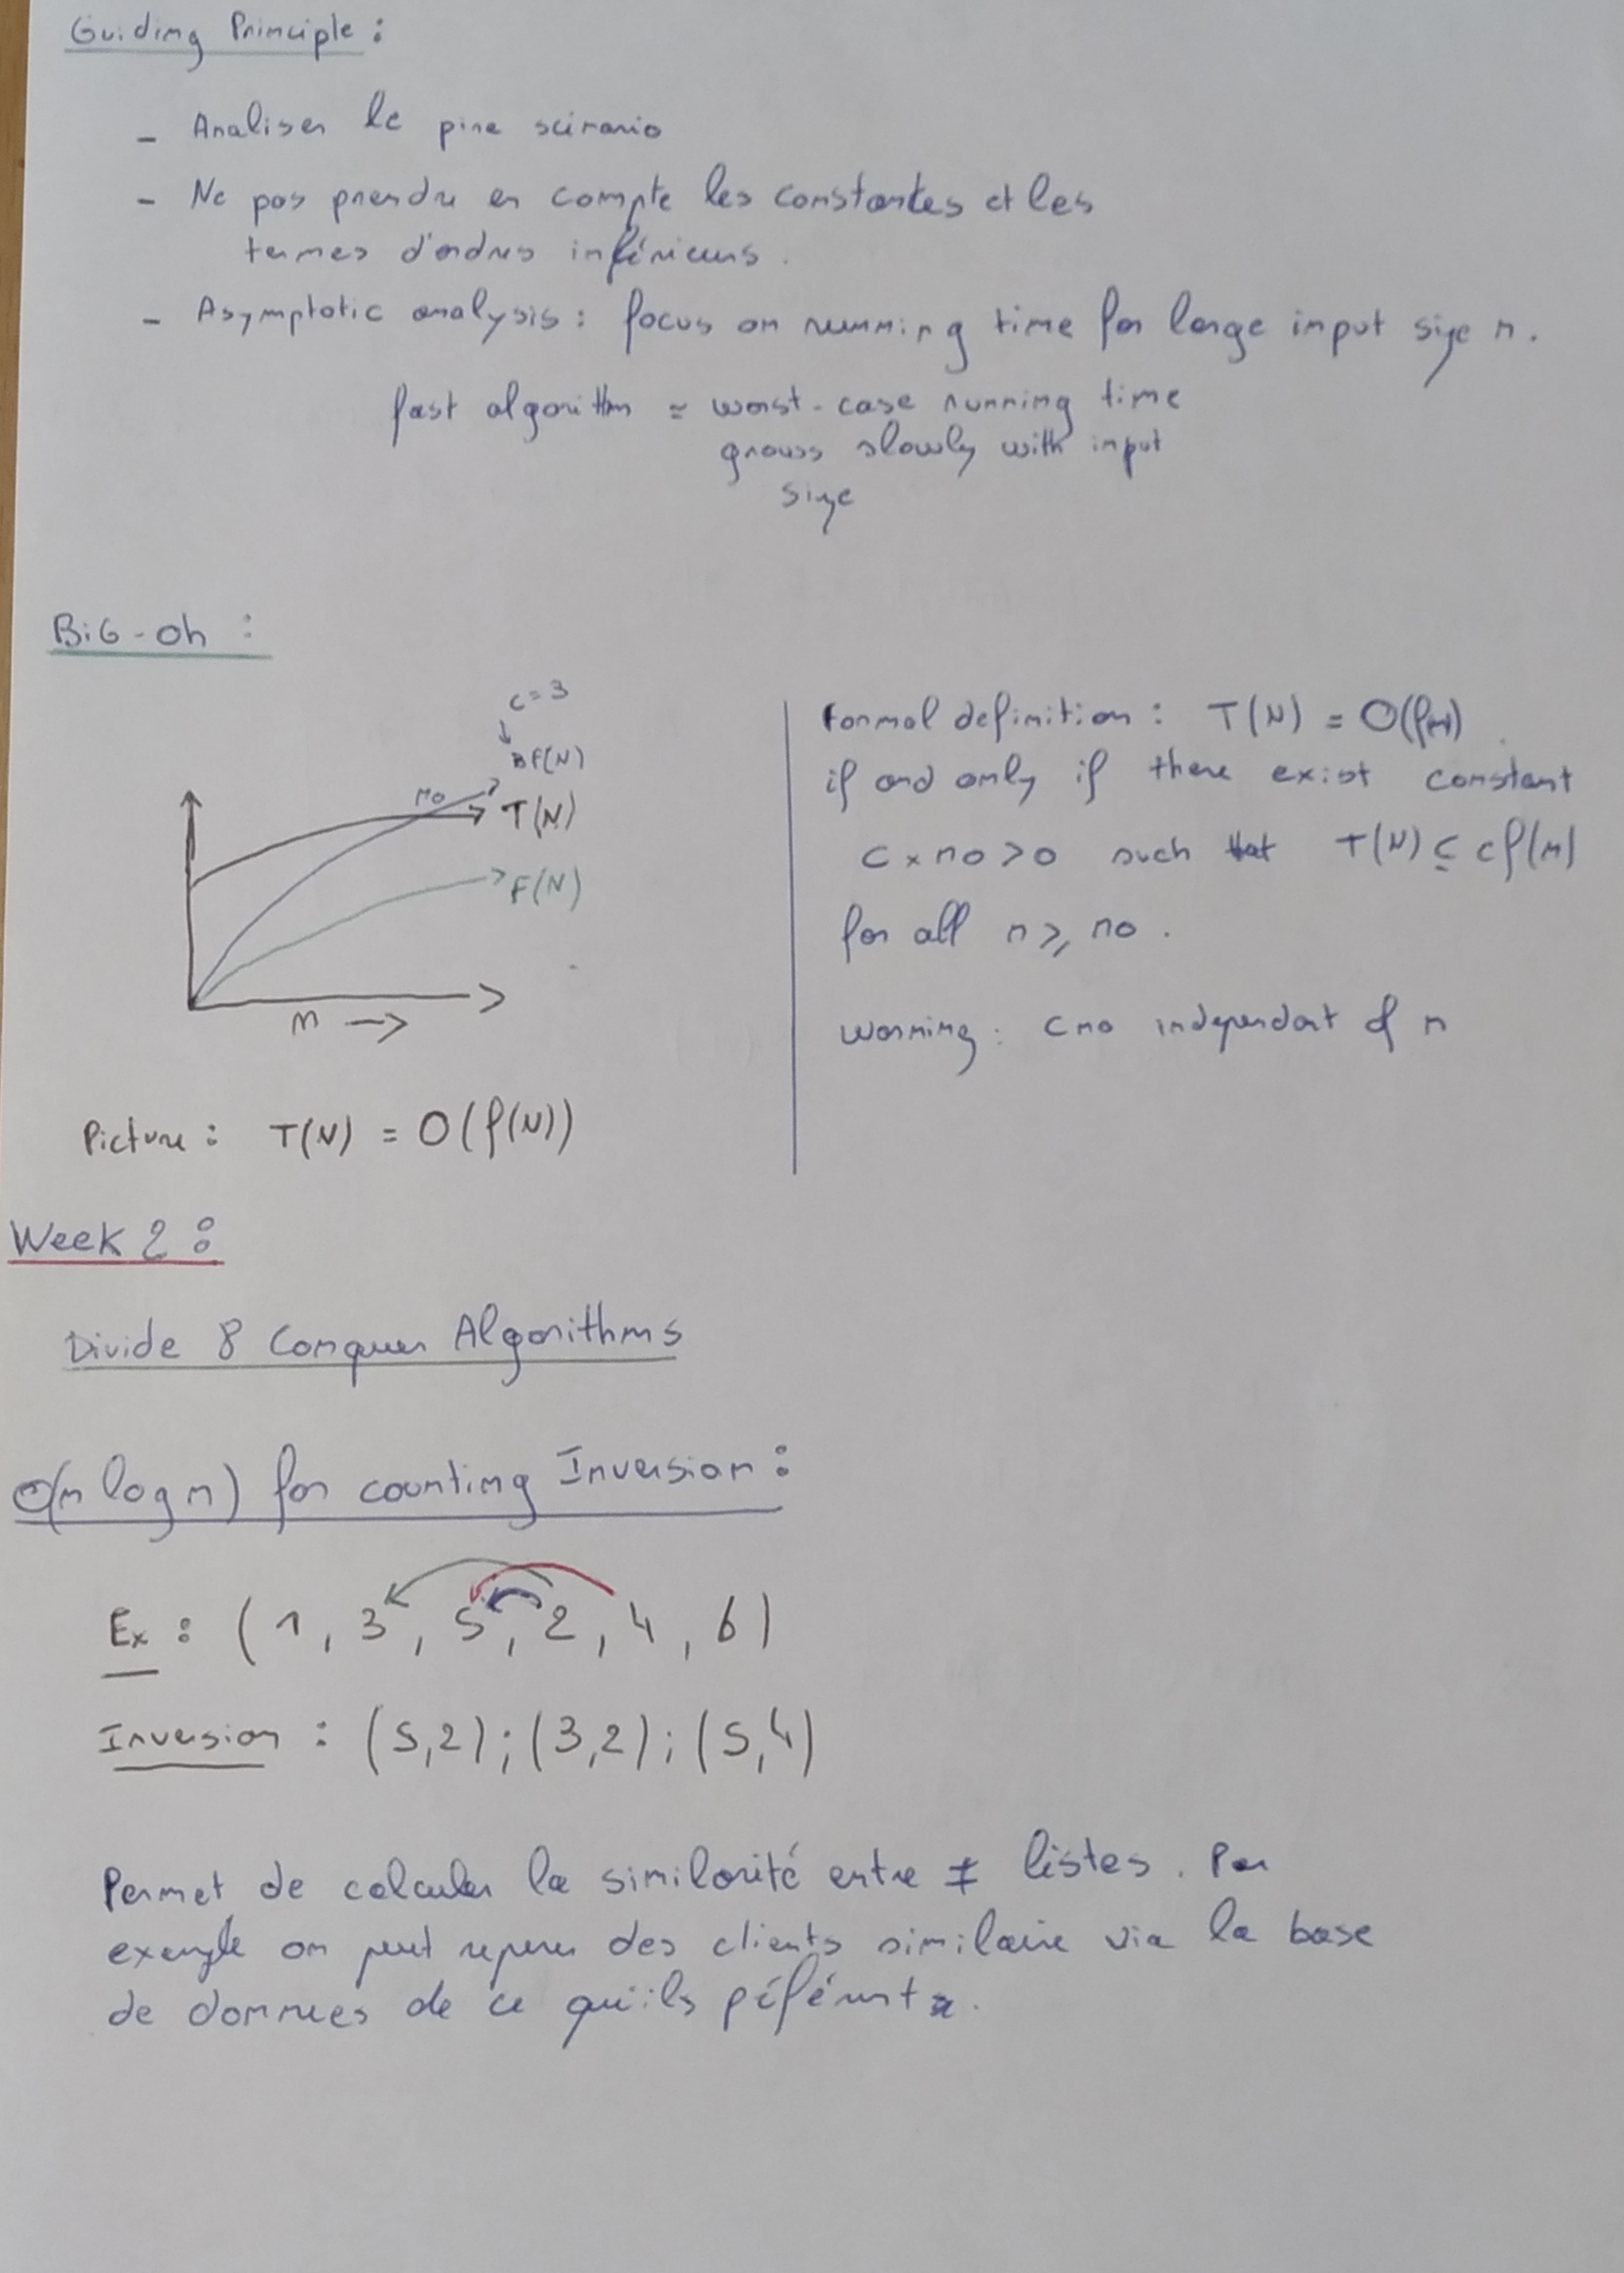 Guiding Principle :
- Analiser le pire scinario
- Ne pas prendre en compte les constantes et les
termes d'ordres inférieurs.
- Asymptotic analysis : focus on running time for large input size n.
fast algorithm = worst-case running time
grows slowly with input
size
BiG-Oh :
c = 3
↓
3F(N)
no
T(N)
F(N)
n →
Picture : T(N) = O(f(N))
Formal definition : T(N) = O(f(N))
if and only if there exist constant
c × no > 0 such that T(N) ≤ cf(n)
for all n ≥ no.
Warning : c no independant of n
Week 2 :
Divide & Conquer Algorithms
O(n log n) for counting Inversion :
Ex : (1, 3, 5, 2, 4, 6)
Inversion : (5,2); (3,2); (5,4)
Permet de calculer la similarité entre ≠ listes. Par
exemple on peut reperer des clients similaire via la base
de donnees de ce qu'ils péférent.